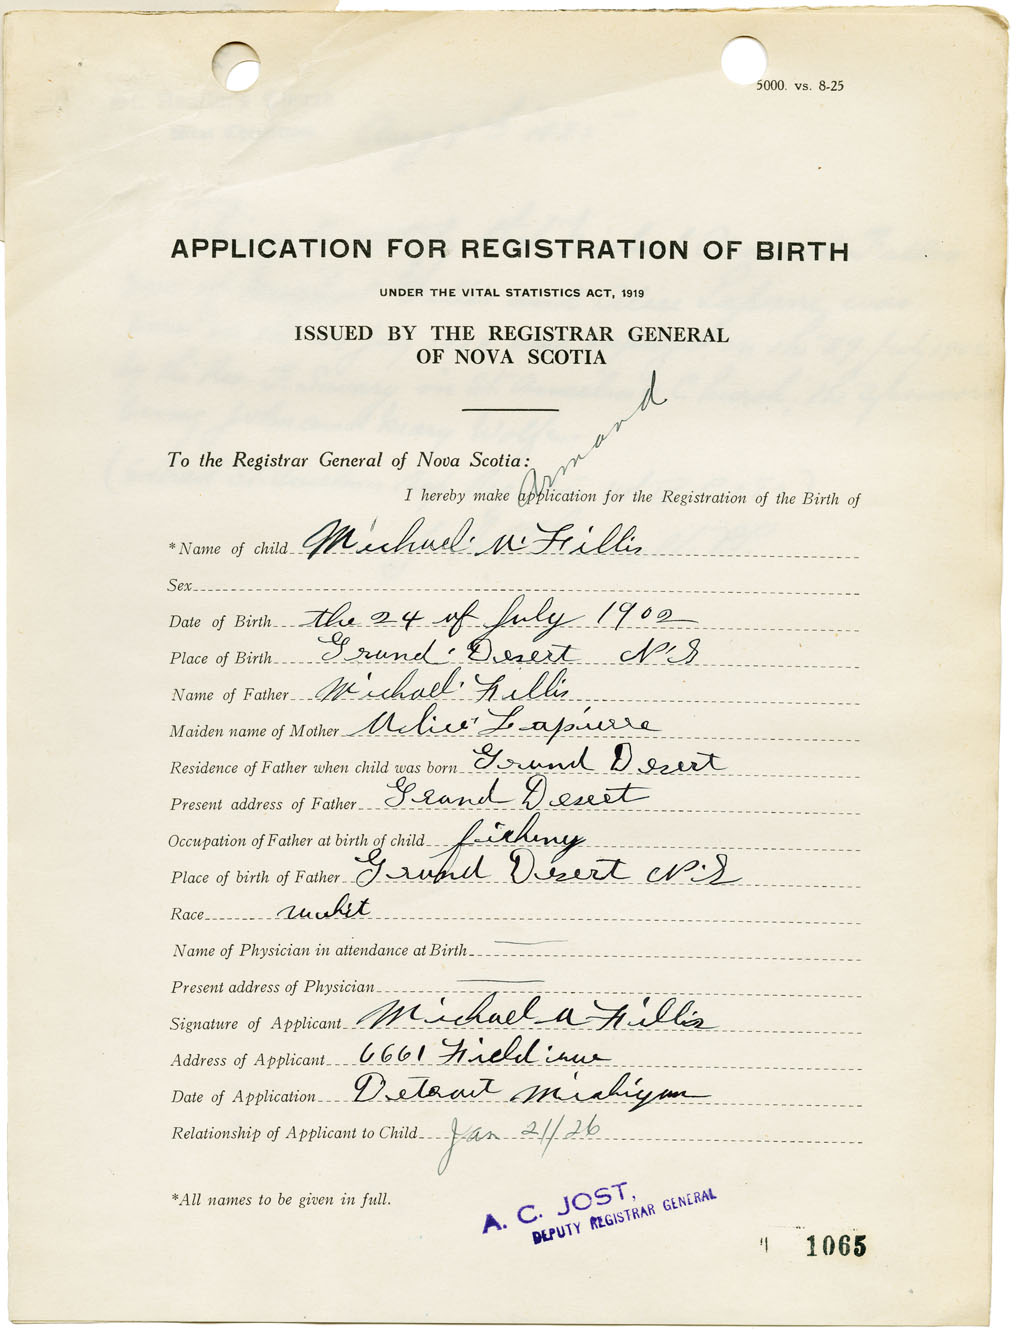 5000. vs. 8-25
APPLICATION FOR REGISTRATION OF BIRTH
UNDER THE VITAL STATISTICS ACT, 1919
ISSUED BY THE REGISTRAR GENERAL
OF NOVA SCOTIA
Armand
To the Registrar General of Nova Scotia:
I hereby make application for the Registration of the Birth of
*Name of child Michael A Fillis
Sex
Date of Birth the 24 of July 1902
Place of Birth Grand Desert N.S
Name of Father Michael Fillis
Maiden name of Mother Lapierre
Residence of Father when child was born Grand Desert
Present address of Father Grand Desert
Occupation of Father at birth of child
Place of birth of Father Grand Desert N.S
Race
Name of Physician in attendance at Birth
Present address of Physician
Signature of Applicant Michael A Fillis
Address of Applicant 6661 Field
Date of Application Detroit Michigan
Relationship of Applicant to Child Jan 21/26
*All names to be given in full.
A. C. JOST,
DEPUTY REGISTRAR GENERAL
1065